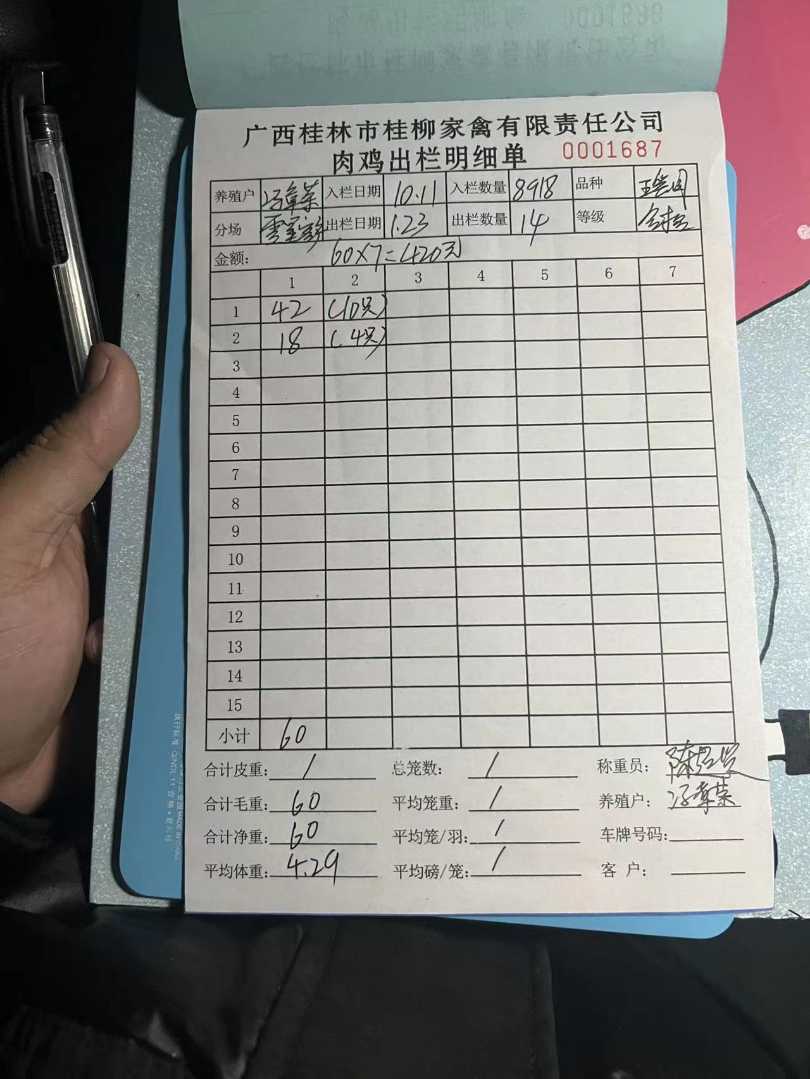 广西桂林市桂柳家禽有限责任公司
肉鸡出栏明细单 0001687
养殖户 冯章荣 入栏日期 10.11 入栏数量 8918 品种
分场 出栏日期 1.23 出栏数量 14 等级
金额: 60×7=420元
1 2 3 4 5 6 7
1 42 (10只)
2 18 (4只)
3
4
5
6
7
8
9
10
11
12
13
14
15
小计 60
合计皮重: / 总笼数: / 称重员:
合计毛重: 60 平均笼重: / 养殖户: 冯章荣
合计净重: 60 平均笼/羽: / 车牌号码:
平均体重: 4.29 平均磅/笼: / 客 户: